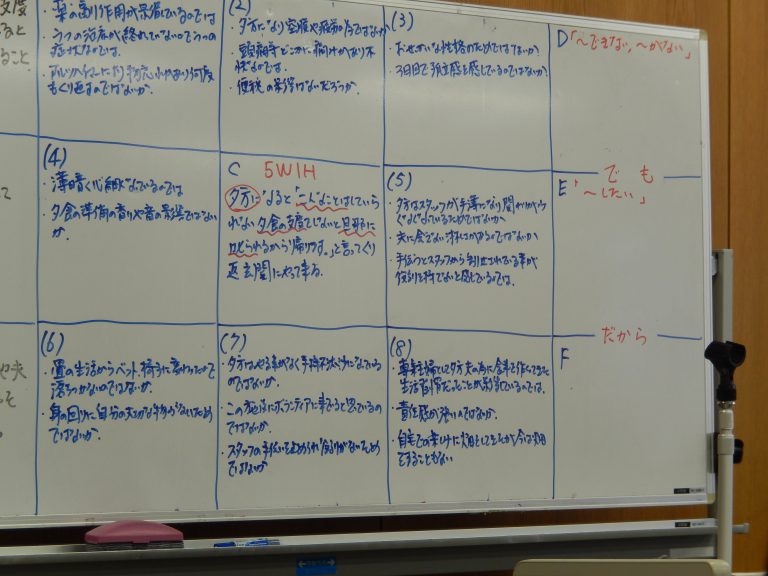 支度
ると
ること
・薬の副作用が影響しているのでは
うつの治療が終れていないのでうつの
症状なのでは。
もくり返すのではないか。
(2)
・夕方になり空腹や疲労の為ではないか
・便秘の影響はないだろうか
(3)
・3日目で孤立感を感じているのではないか
D「〜できない、〜がない」
(4)
・薄暗く心細くなっているのでは
・夕食の準備の香りや音の影響ではない
か。
C 5W1H
夕方になると「こんなことはしていら
れない夕食の支度をしないと旦那に
叱られるから帰ります。」と言ってくり
返し玄関にやって来る。
(5)
・夕方はスタッフが手薄になり関わりがうす
くなっているためではないか
・夫に会えない淋しさがあるのではないか
・手伝うとスタッフから
役割を持てないと感じているのでは。
でも
E「〜したい」
(6)
・畳の生活からベット、椅子に変わったので
落ちつかないのではないか。
・身の回りに自分の大切な物がないため
ではないか。
(7)
・夕方はやる事がなく手持ち不沙汰になっている
のではないか。
・この施設にボランティアに来てると思っているの
ではないか。
・スタッフの手伝いを止められ役割がないため
ではないか
(8)
・専業主婦として夕方夫の為に食事を作ってきた
生活習慣だったことが影響しているのでは。
・責任感が強いのではないか。
できることもない
だから
F